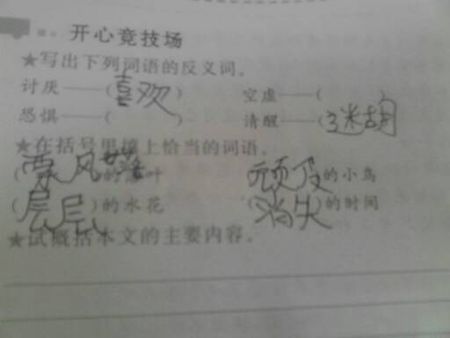 开心竞技场
★写出下列词语的反义词。
讨厌——(喜欢) 空虚——( )
恐惧——( ) 清醒——(迷胡)
★在括号里填上恰当的词语。
(飘风)的落叶 (顽皮)的小鸟
(层层)的水花 (消失)的时间
★试概括本文的主要内容。